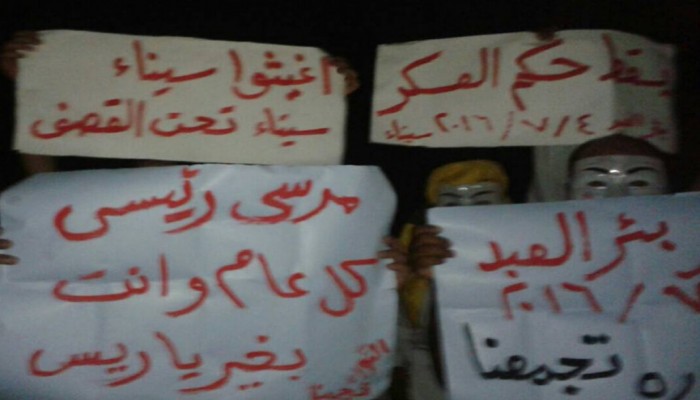 اغيثوا سيناء
سيناء تحت القصف
يسقط حكم العسكر
بئر العبد
٢٠١٦/٧/٤ سيناء
مرسى رئيسى
كل عام وانت
بخير يا ريس
بئر العبد
٢٠١٦/
تجمعنا